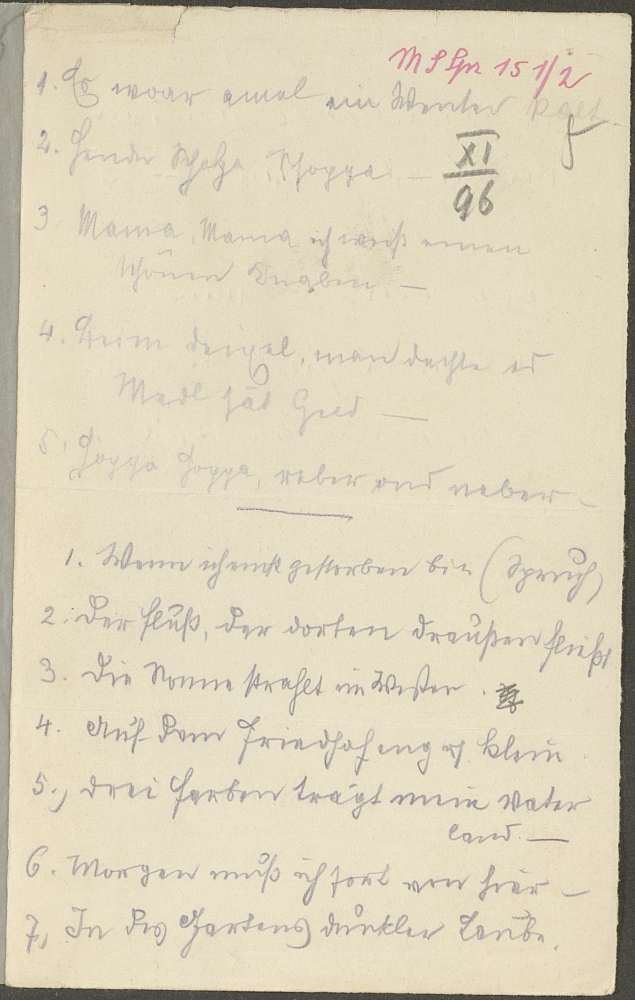 M S Spr 15 1/2
1. Es woar amol ein Wenter kalt
5
XI
96
2. Hender Schofza, Schoppa —
3 Mama, Mama ich weiß einen
schönen Knaben. —
4. Beim Deixel, man dachte es
Madl hat Geld —
5. Hoppa hoppa, reber ond neber —
1. Wenn ich einst gestorben bin (Spruch)
2. Der Fluß, der dorten draußen fließt
3. Die Sonne strahlt im Westen.
4. Auf dem Friedhof eng u klein.
5., Drei Farben trägt mein Vater
land. —
6. Morgen muß ich fort von hier —
7, In des Gartens dunkler Laube.